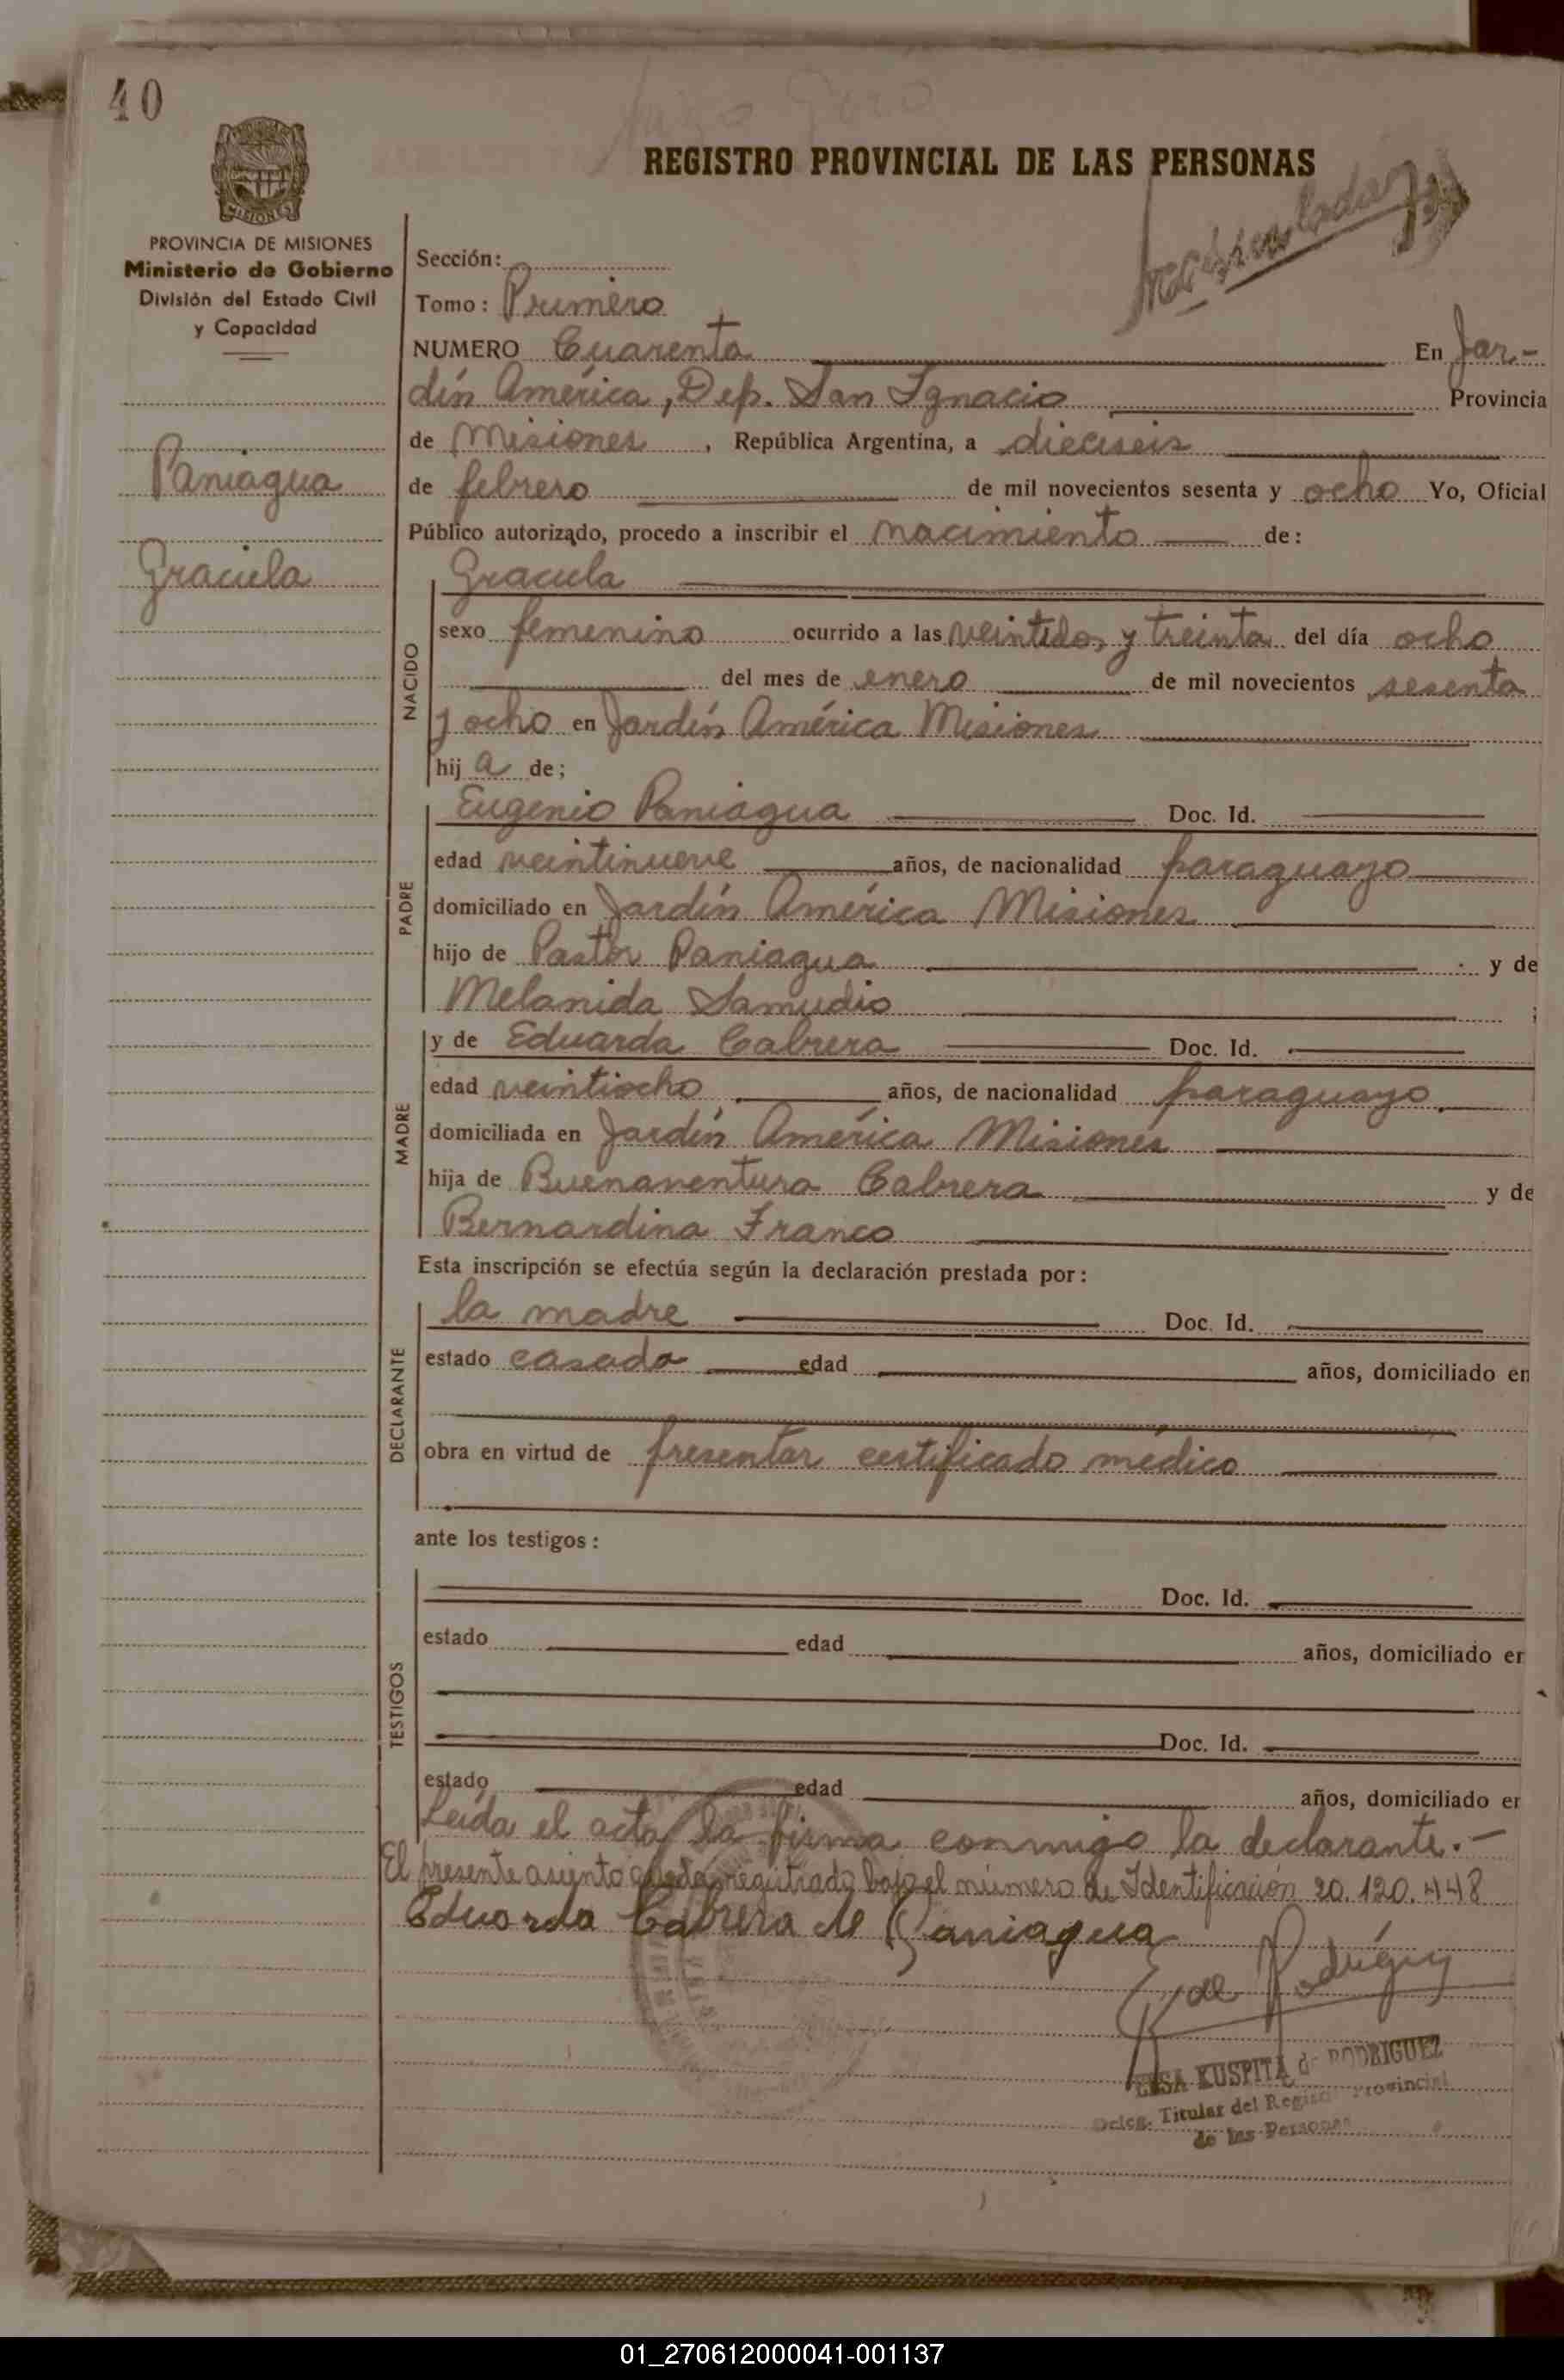 40
REGISTRO PROVINCIAL DE LAS PERSONAS
MISIONES
PROVINCIA DE MISIONES
Ministerio de Gobierno
División del Estado Civil
y Capacidad
Matriculada
Sección:
Tomo: Primero
NUMERO Cuarenta En Jar-
dín América, Dep. San Ignacio Provincia
de Misiones, República Argentina, a dieciseis
Paniagua
de febrero de mil novecientos sesenta y ocho Yo, Oficial
Público autorizado, procedo a inscribir el nacimiento de:
Graciela
Graciela
NACIDO
sexo femenino ocurrido a las veintidos y treinta del día ocho
del mes de enero de mil novecientos sesenta
y ocho en Jardín América Misiones
hij a de;
PADRE
Eugenio Paniagua Doc. Id.
edad veintinueve años, de nacionalidad paraguayo
domiciliado en Jardín América Misiones
hijo de Pastor Paniagua y de
Melanida Samudio ;
MADRE
y de Eduarda Cabrera Doc. Id.
edad veintiocho años, de nacionalidad paraguayo
domiciliada en Jardín América Misiones
hija de Buenaventura Cabrera y de
Bernardina Franco
Esta inscripción se efectúa según la declaración prestada por:
DECLARANTE
la madre Doc. Id.
estado casada edad años, domiciliado en
obra en virtud de presentar certificado médico
ante los testigos:
TESTIGOS
Doc. Id.
estado edad años, domiciliado en
Doc. Id.
estado edad años, domiciliado en
Leída el acta la firma conmigo la declarante.-
El presente asiento queda registrado bajo el número de Identificación 20.120.448
Eduarda Cabrera de Paniagua
E K de Rodríguez
ELSA KUSPITA de RODRIGUEZ
Deleg. Titular del Registro Provincial
de las Personas
01_270612000041-001137